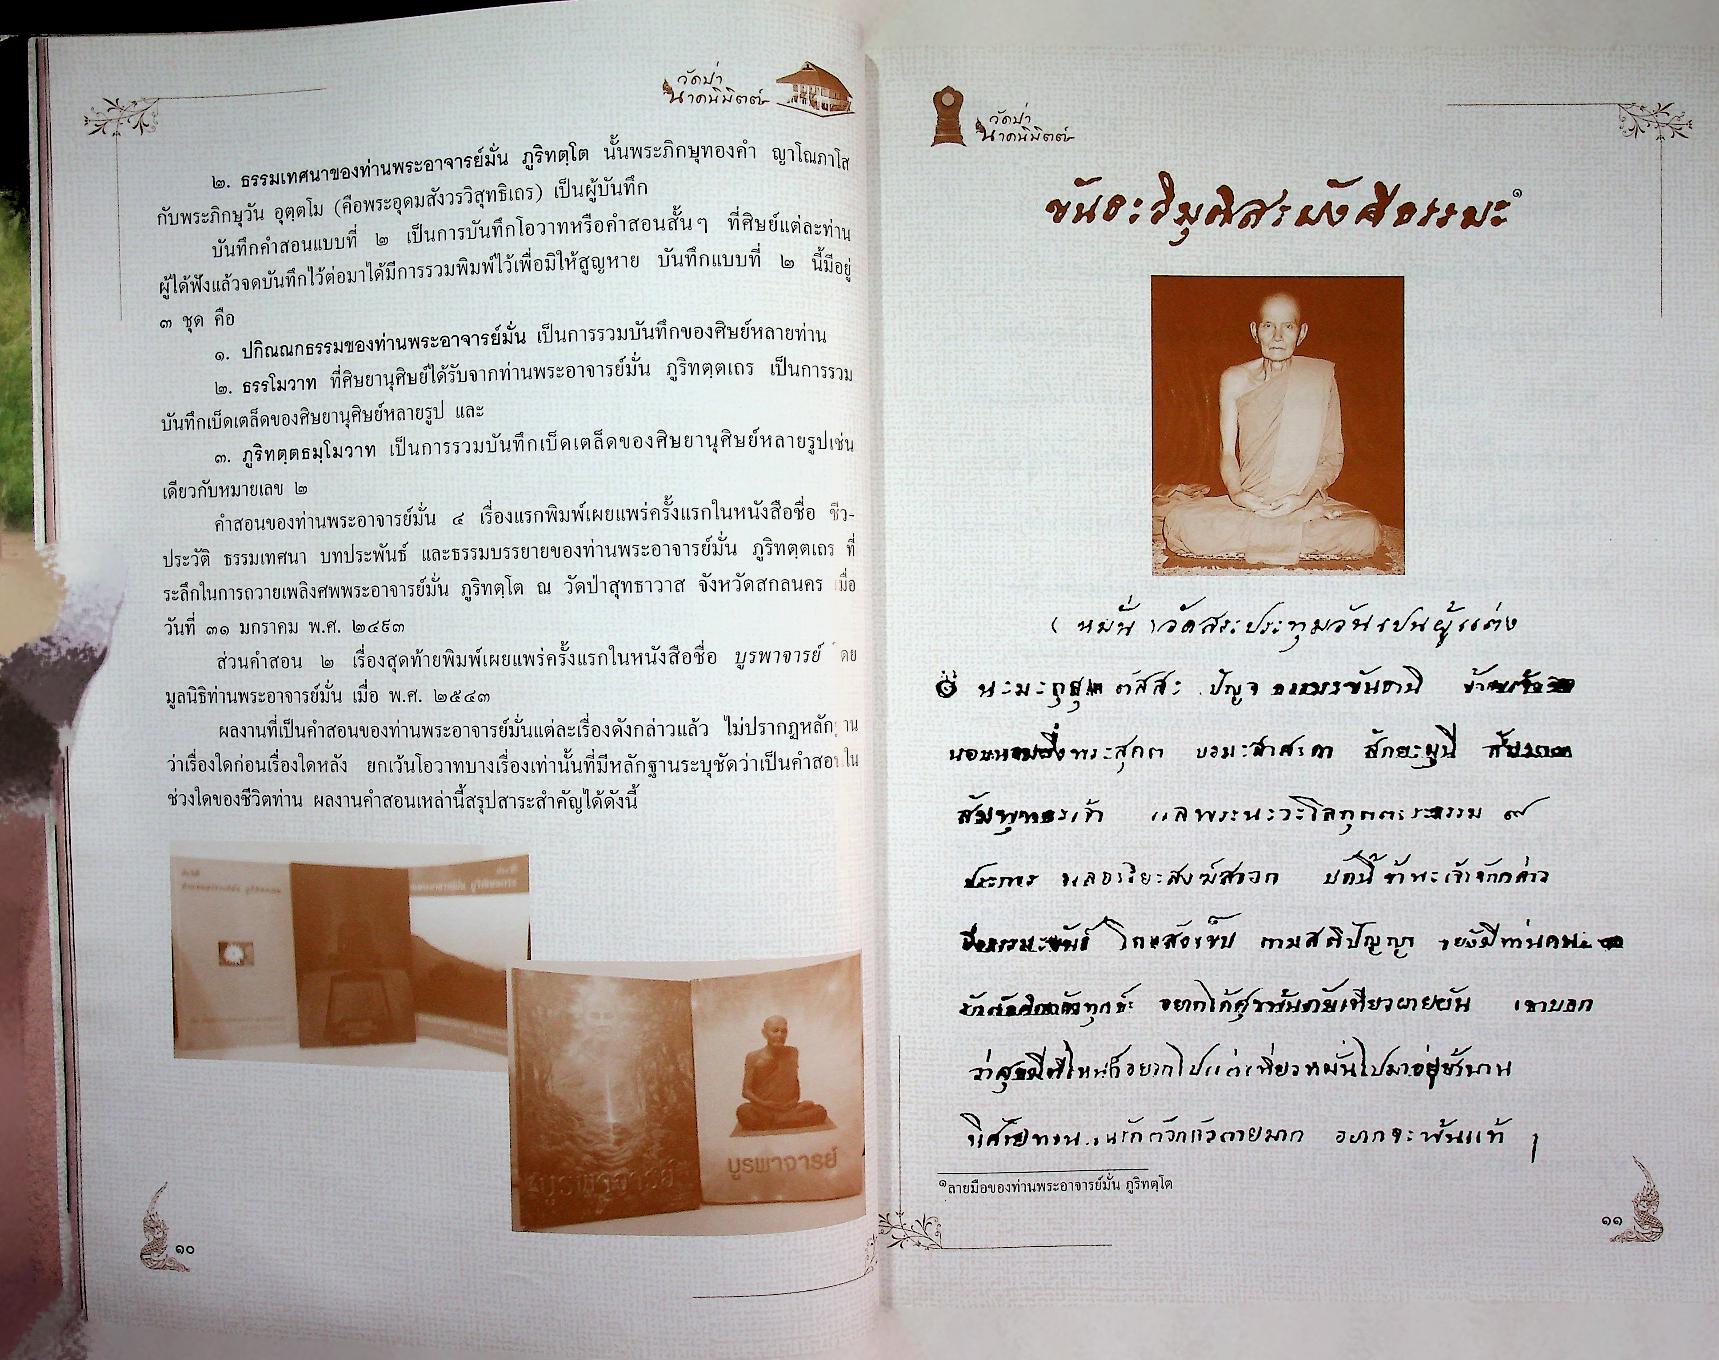 วัดป่า
นาคนิมิตต์
๒. ธรรมเทศนาของท่านพระอาจารย์มั่น ภูริทตฺโต นั้นพระภิกษุทองคำ ญาโณภาโส
กับพระภิกษุวัน อุตฺตโม (คือพระอุดมสังวรวิสุทธิเถร) เป็นผู้บันทึก
บันทึกคำสอนแบบที่ ๒ เป็นการบันทึกโอวาทหรือคำสอนสั้นๆ ที่ศิษย์แต่ละท่าน
ผู้ได้ฟังแล้วจดบันทึกไว้ต่อมาได้มีการรวมพิมพ์ไว้เพื่อมิให้สูญหาย บันทึกแบบที่ ๒ นี้มีอยู่
๓ ชุด คือ
๑. ปกิณณกธรรมของท่านพระอาจารย์มั่น เป็นการรวมบันทึกของศิษย์หลายท่าน
๒. ธรรโมวาท ที่ศิษยานุศิษย์ได้รับจากท่านพระอาจารย์มั่น ภูริทตฺตเถร เป็นการรวม
บันทึกเบ็ดเตล็ดของศิษยานุศิษย์หลายรูป และ
๓. ภูริทตฺตธมฺโมวาท เป็นการรวมบันทึกเบ็ดเตล็ดของศิษยานุศิษย์หลายรูปเช่น
เดียวกับหมายเลข ๒
คำสอนของท่านพระอาจารย์มั่น ๔ เรื่องแรกพิมพ์เผยแพร่ครั้งแรกในหนังสือชื่อ ชีว-
ประวัติ ธรรมเทศนา บทประพันธ์ และธรรมบรรยายของท่านพระอาจารย์มั่น ภูริทตฺตเถร ที่
ระลึกในการถวายเพลิงศพพระอาจารย์มั่น ภูริทตฺโต ณ วัดป่าสุทธาวาส จังหวัดสกลนคร เมื่อ
วันที่ ๓๑ มกราคม พ.ศ. ๒๔๙๓
ส่วนคำสอน ๒ เรื่องสุดท้ายพิมพ์เผยแพร่ครั้งแรกในหนังสือชื่อ บูรพาจารย์ โดย
มูลนิธิท่านพระอาจารย์มั่น เมื่อ พ.ศ. ๒๕๔๓
ผลงานที่เป็นคำสอนของท่านพระอาจารย์มั่นแต่ละเรื่องดังกล่าวแล้ว ไม่ปรากฏหลักฐาน
ว่าเรื่องใดก่อนเรื่องใดหลัง ยกเว้นโอวาทบางเรื่องเท่านั้นที่มีหลักฐานระบุชัดว่าเป็นคำสอนใน
ช่วงใดของชีวิตท่าน ผลงานคำสอนเหล่านี้สรุปสาระสำคัญได้ดังนี้
บูรพาจารย์
บูรพาจารย์
๑๐
วัดป่า
นาคนิมิตต์
ขันธะวิมุติสะมังคีธรรมะ๑
(หมั่น) วัดสระประทุมวันเปนผู้แต่ง
นะมะตฺถุ สุคตัสสะ ปัญจ ธรรมขันธานิ
พระสุคต บรมะสาศะดา สักยะมุนี
สัมพุทธะเจ้า แลพระนะวะโลกุตตะระธรรม ๙
ประการ แลอริยะสงฆ์สาวก บัดนี้ข้าพะเจ้าจักกล่าว
ซึ่งธรรมะขันธ์ โดยสังเขป ตามสติปัญญา ยังมีท่านคนะ
รักตัวคิดกลัวทุกข์ อยากได้ศุขพ้นภัยเที่ยวผายผัน เขาบอก
ว่าสุขมีที่ไหนก็อยากไปแต่เที่ยวหมั่นไปมาอยู่ช้านาน
นิศัยท่านนั้นรักตัวกลัวตายมาก อยากจะพ้นแท้ ๆ
๑ลายมือของท่านพระอาจารย์มั่น ภูริทตฺโต
๑๑